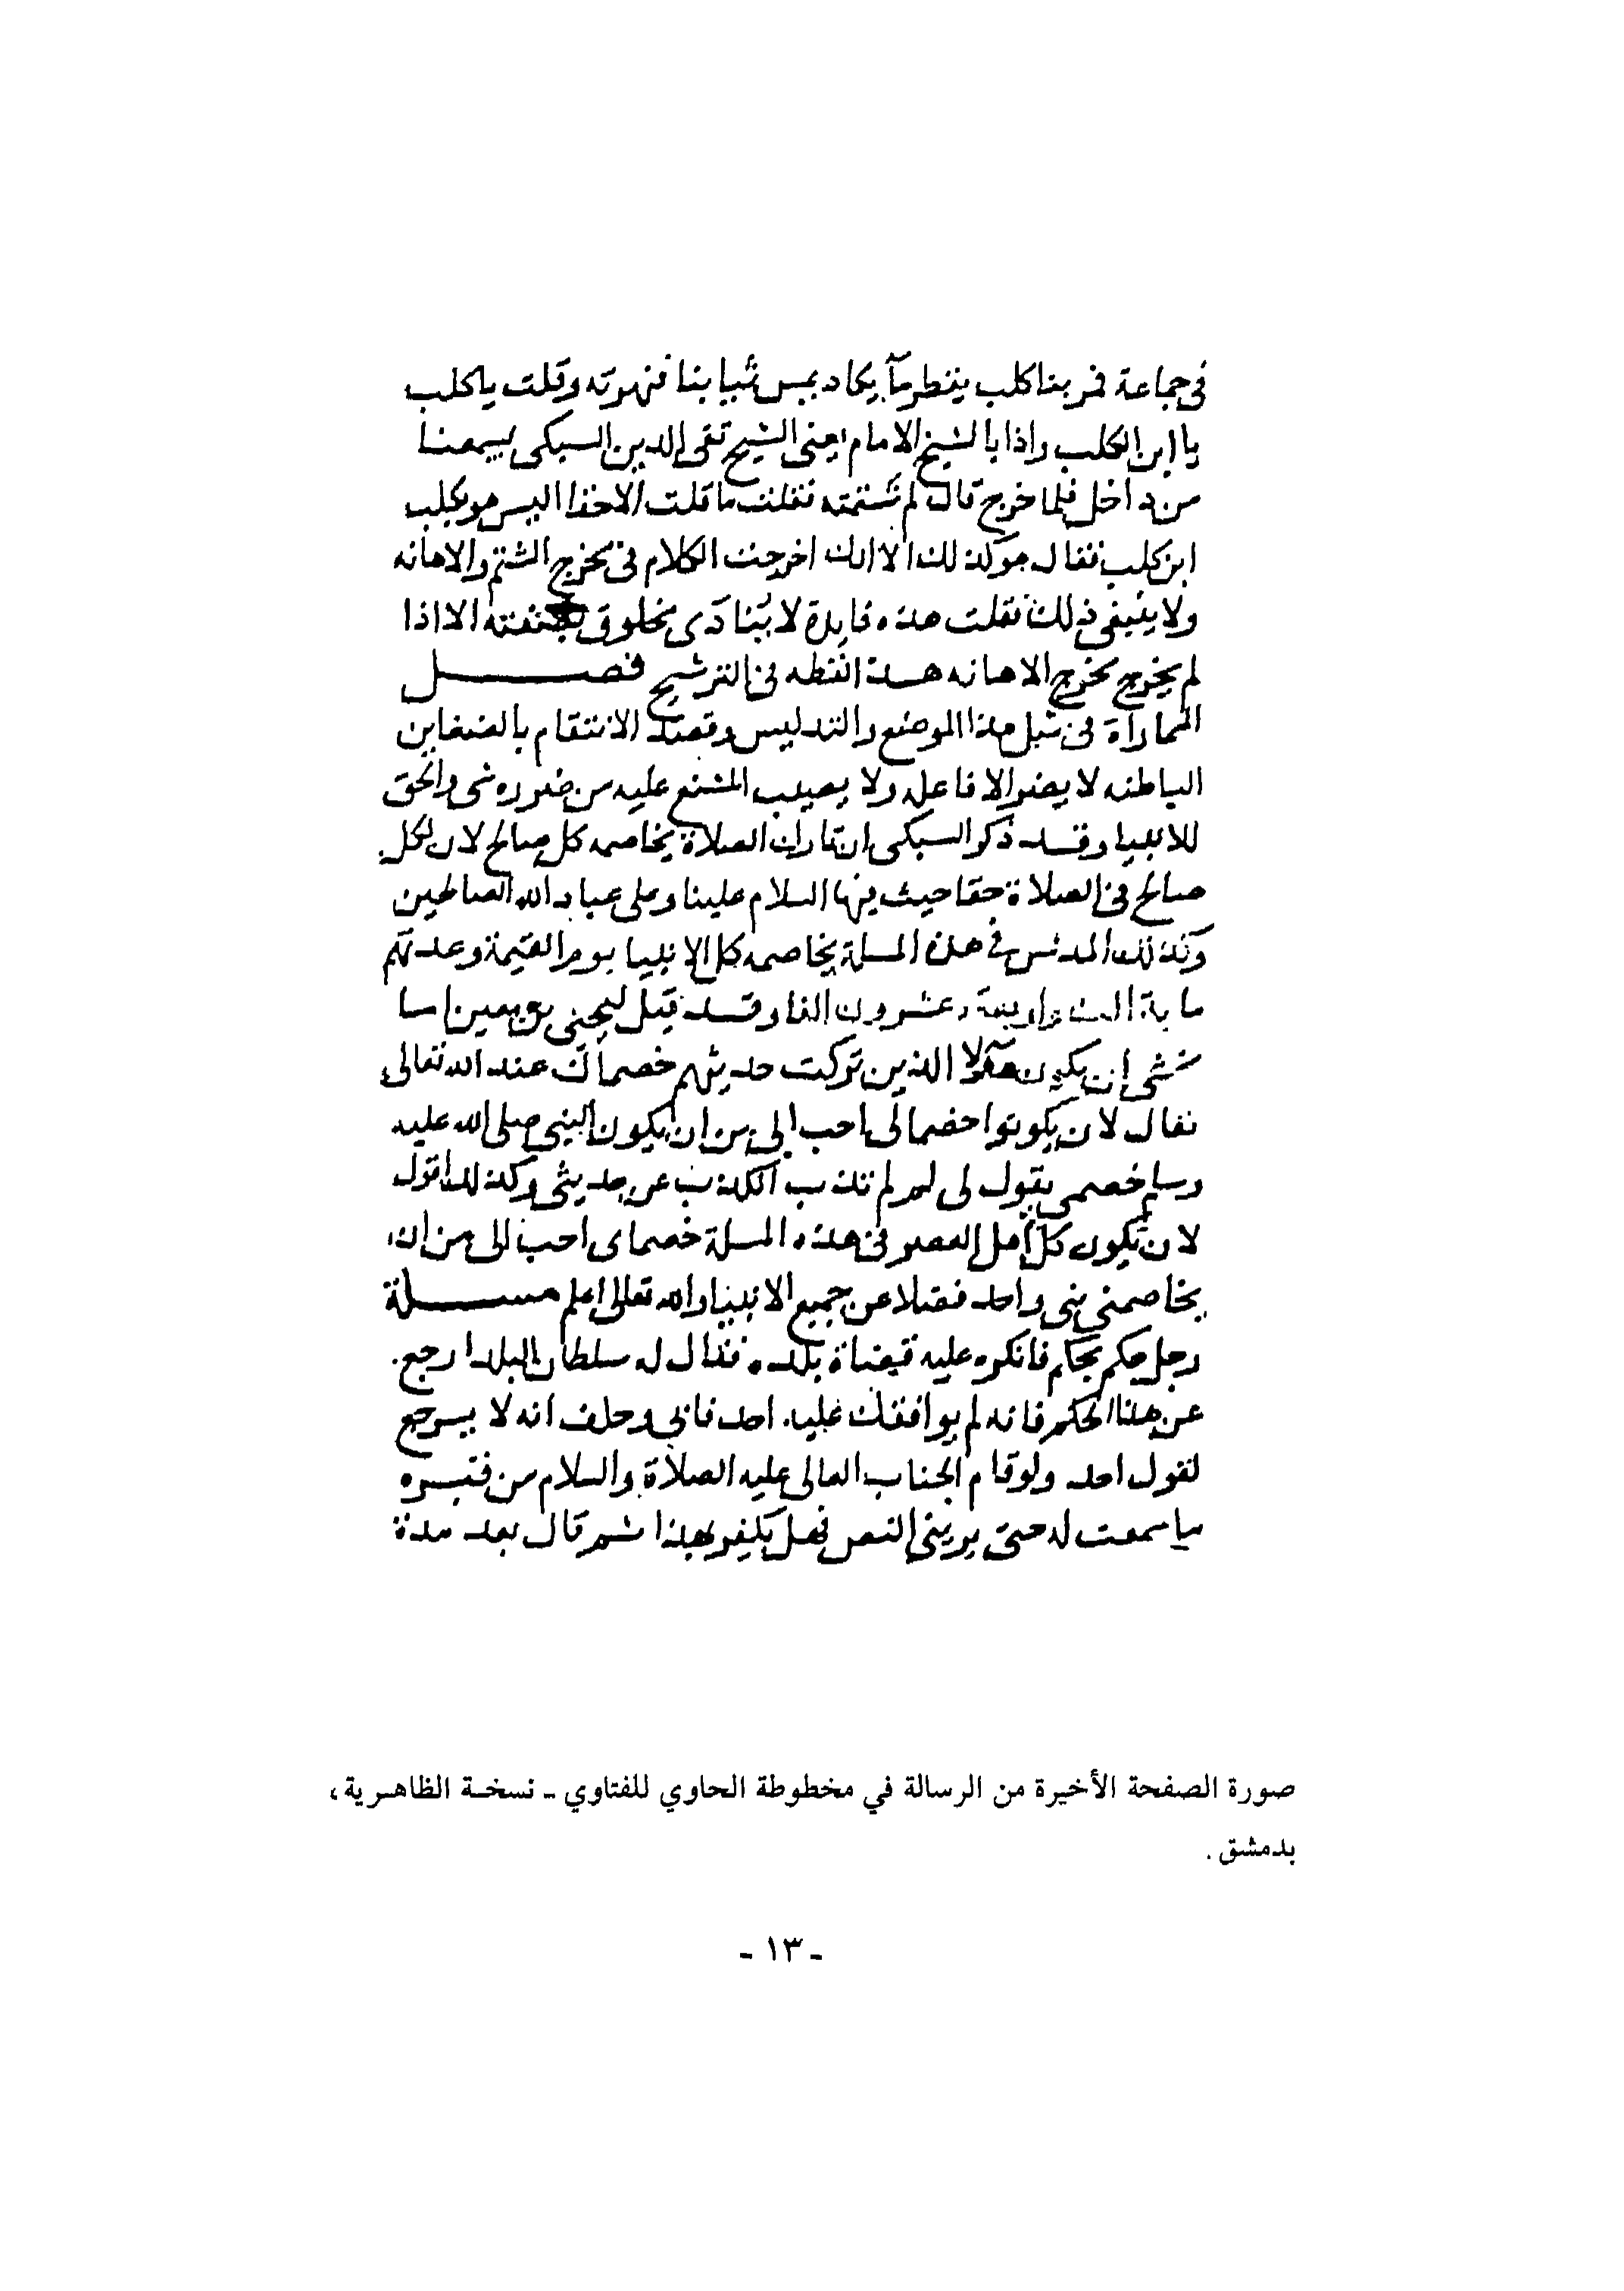 في جماعة فمر بنا كلب يقطر ماء يكاد يمس ثيابنا فنهرته وقلت يا كلب
يا ابن الكلب واذا بالشيخ الامام يعني الشيخ تقي الدين السبكي يسمعنا
من داخل فلما خرج قال لم شتمته فقلت ما قلت الا حقا اليس هو بكلب
ابن كلب فقال هو كذلك الا انك اخرجت الكلام في مخرج الشتم والاهانه
ولا ينبغي ذلك فقلت هذه فايدة لا ينادى مخلوق بصفته الا اذا
لم يخرج مخرج الاهانه هذا لفظه في الترشيح فصل
المماراة في مثل هذا الموضع والتدليس وقصد الانتقام بالضغاين
الباطنه لا يضر الا فاعله ولا يصيب المشنع عليه من ضرره شي والحق
للانبيا وقد ذكر السبكي ان تارك الصلاة يخاصمه كل صالح لان لكل
صالح في الصلاة حقا حيث فيها السلام علينا وعلى عباد الله الصالحين
وكذلك المدلس في هذه المسلة يخاصمه كل الانبيا يوم القيمة وعدتهم
ماية الف واربعة وعشرون الفا وقد قيل ليحيى بن معين اما
تخشى ان يكون هؤلا الذين تركت حديثهم خصماك عند الله تعالى
فقال لان يكونوا خصمالى احب الي من ان يكون النبي صلى الله عليه
وسلم خصمي يقول لي لم لم تذب الكذب عن حديثي وكذلك اقول
لان يكون كل اهل العصر في هذه المسلة خصماى احب الى من ان
يخاصمني نبي واحد فضلا عن جميع الانبيا والله تعالى اعلم مسلة
رجل حكم بحكم فانكره عليه قضاة بلده فقال له سلطان البلد ارجع
عن هذا الحكم فانه لم يوافقك عليه احد فابى وحلف انه لا يرجع
لقول احد ولو قام الجناب العالي عليه الصلاة والسلام من قبره
ما سمعت له حتى يريني النص فهل يكفر بهذا ثم قال بعد مدة
صورة الصفحة الأخيرة من الرسالة في مخطوطة الحاوي للفتاوي - نسخة الظاهرية،
بدمشق.
- ١٣ -